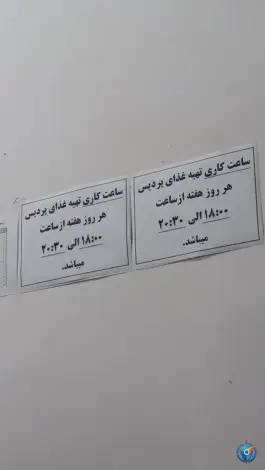 ساعت کاری تهیه غذای پردیس
هر روز هفته از ساعت
۱۸:۰۰ الی ۲۰:۳۰
میباشد.
ساعت کاری تهیه غذای پردیس
هر روز هفته از ساعت
۱۸:۰۰ الی ۲۰:۳۰
میباشد.